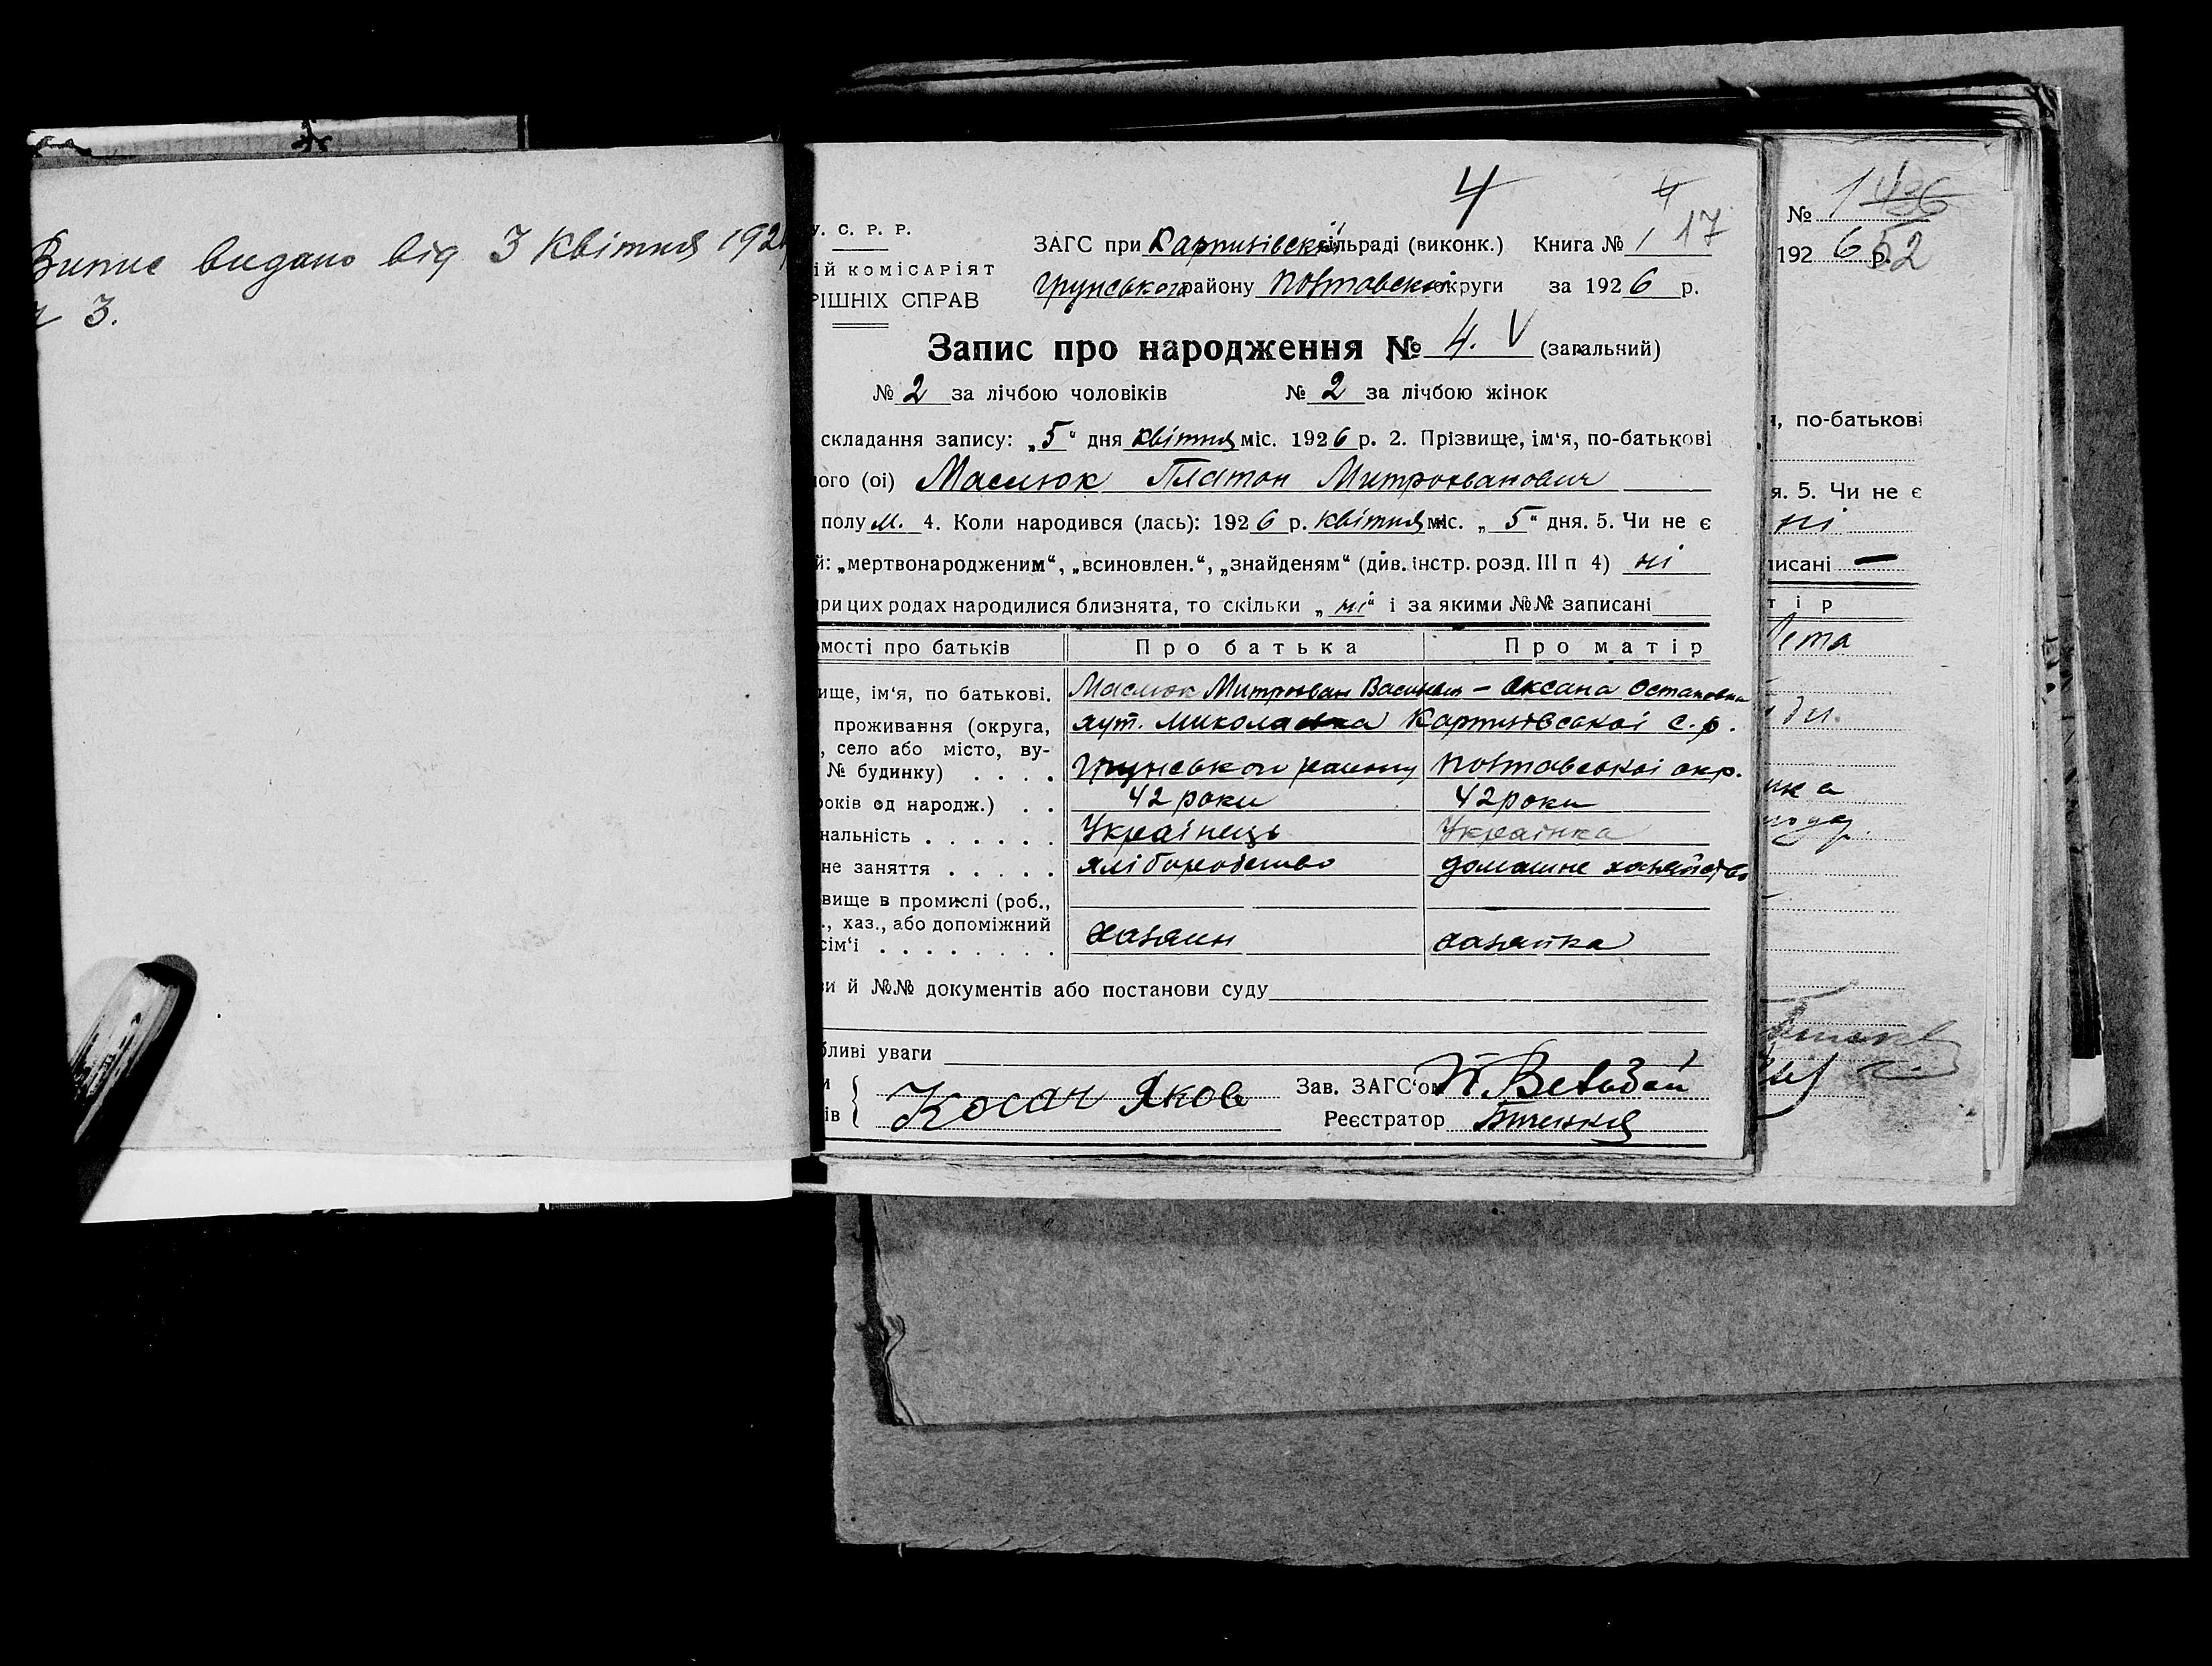 Випис видано від 3 Квітня 192
3.
4
4
17
У. С. Р. Р.
ІЙ КОМІСАРІЯТ
РІШНІХ СПРАВ
ЗАГС при Карпилівській сільраді (виконк.) Книга № 1
Грунського району Полтавської округи за 1926 р.
Запис про народження № 4. V (загальний)
№ 2 за лічбою чоловіків № 2 за лічбою жінок
складання запису: „5" дня квітня міс. 1926 р. 2. Прізвище, ім'я, по-батькові
ого (ої) Маслюк Платон Митрованович
полу м. 4. Коли народився (лась): 1926 р. квітня міс. „5" дня. 5. Чи не є
й: „мертвонародженим", „всиновлен.", „знайденям" (див. інстр. розд. III п 4) ні
при цих родах народилися близнята, то скільки „ні" і за якими №№ записані
омості про батьків Про батька Про матір
ище, ім'я, по батькові. Маслюк Митрован Васильев – Оксана Остаповна
проживання (округа, хут. Миколаевка Карпилівської с. р.
, село або місто, ву-
№ будинку) . . . . Грунського району Полтавської окр.
років од народж.) . . 42 роки 42 роки
нальність . . . . . . Українець Українка
не заняття . . . . . хліборобство домашне хазяйство
вище в промислі (роб.,
., хаз., або допоміжний
сім'ї . . . . . . . . хазяин хазяйка
ви й №№ документів або постанови суду
бливі уваги
и
ів { Косач Яков
Зав. ЗАГС'ом
Реєстратор
№ 1 436
192 6 р. 52
, по-батькові
я. 5. Чи не є
ні
писані —
т і р